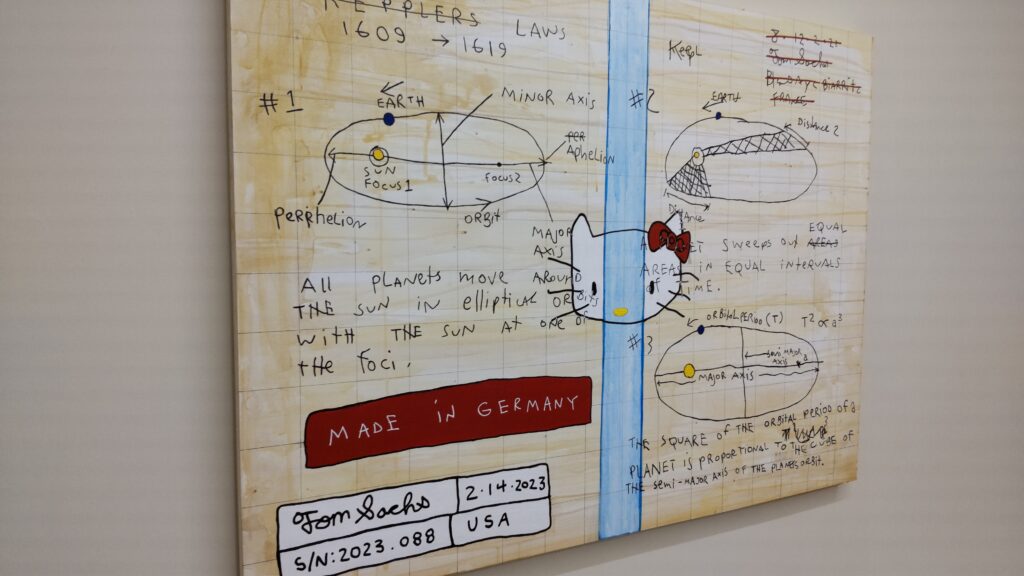 KEPPLERS LAWS
1609 → 1619
#1
EARTH
MINOR AXIS
SUN
FOCUS 1
FOCUS 2
Aphelion
Perphelion
ORBIT
MAJOR
AXIS
All PLANETS MOVE AROUND
THE SUN IN elliptical ORBITS
WITH THE SUN AT ONE OF
the foci.
MADE iN GERMANY
Tom Sachs
2·14·2023
S/N:2023.088
USA
Kepl
8·12·2021
Tom Sachs
BIARRITZ
FRANCE
#2
EARTH
Distance 2
Distance
SWEEPS OUT EQUAL
AREAS
AREAS IN EQUAL INTERVALS
OF TIME.
#3
ORBITAL PERIOD (T) T² ∝ a³
SEMI MAJOR
AXIS
MAJOR AXIS
THE SQUARE OF THE ORBITAL PERIOD OF A
PLANET IS PROPORTIONAL TO THE CUBE OF
THE SEMI-MAJOR AXIS OF THE PLANETS ORBIT.